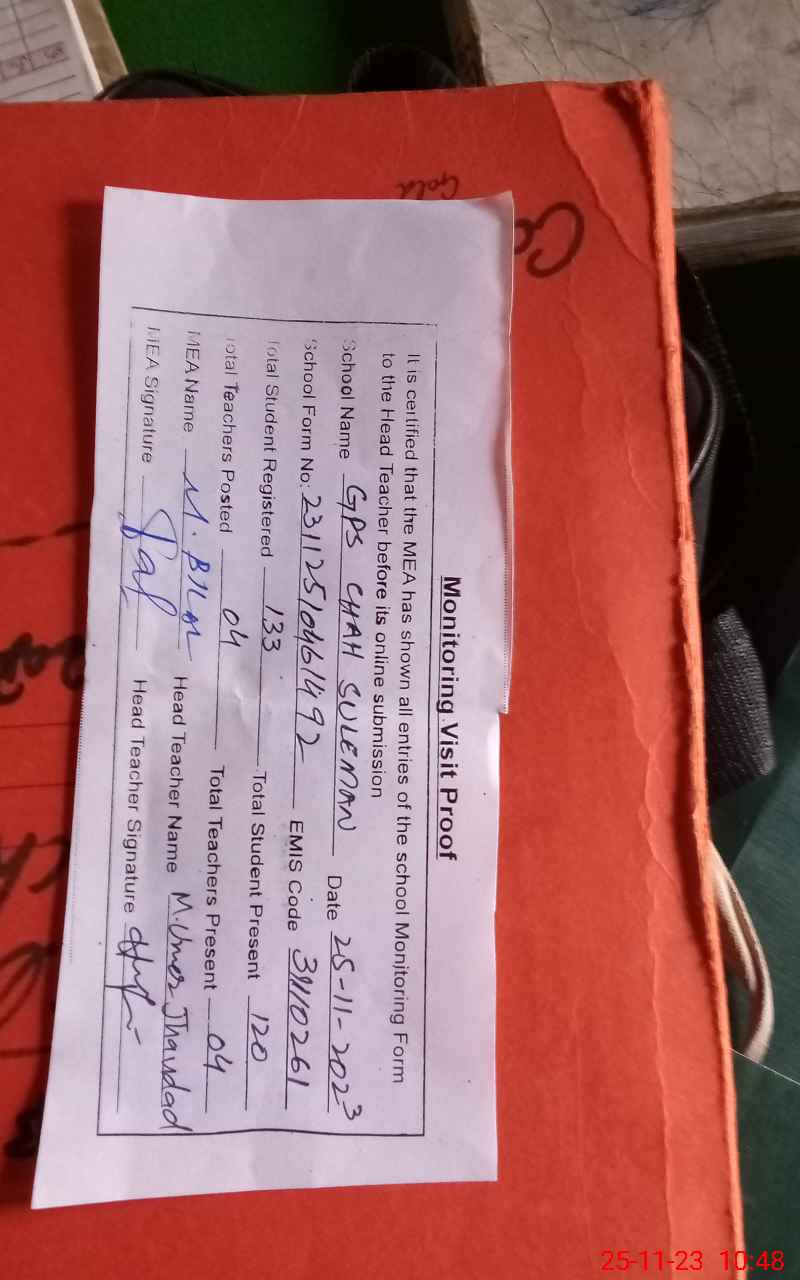 Gold
Monitoring Visit Proof
It is certified that the MEA has shown all entries of the school Monitoring Form
to the Head Teacher before its online submission
School Name GPS CHAH SULEMAN Date 25-11-2023
School Form No: 23112510461492 EMIS Code
Total Student Registered 133 Total Student Present 120
Total Teachers Posted 04 Total Teachers Present 04
MEA Name M. Bilal Head Teacher Name M. Umer Jhandad
MEA Signature Head Teacher Signature
25-11-23 10:48